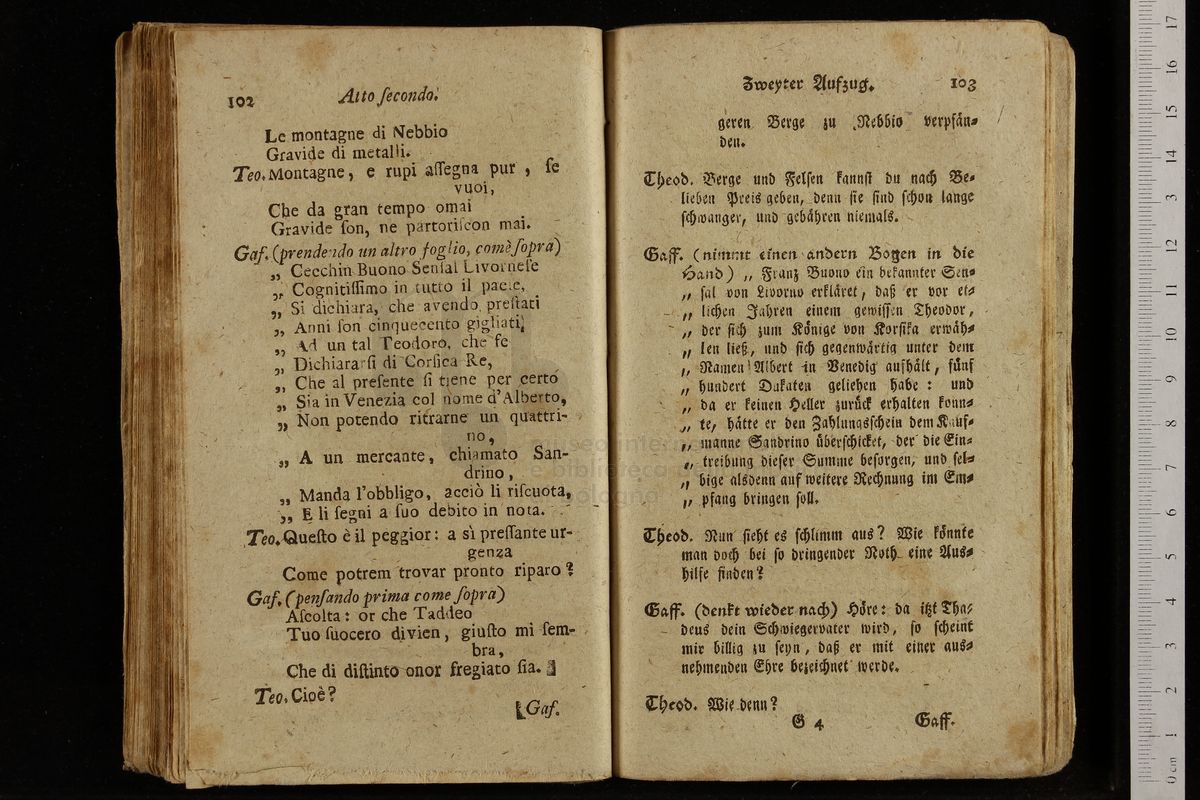 102
Atto ſecondo.
Le montagne di Nebbio
Gravide di metalli.
Teo. Montagne, e rupi aſſegna pur, ſe
vuoi,
Che da gran tempo omai
Gravide ſon, ne partoriſcon mai.
Gaf. (prendendo un altro foglio, comè ſopra)
„ Cecchin Buono Senſal Livorneſe
„ Cognitiſſimo in tutto il paeſe,
„ Si dichiara, che avendo preſtati
„ Anni ſon cinquecento gigliati,
„ Ad un tal Teodoro, che fe
„ Dichiararſi di Corſica Re,
„ Che al preſente ſi tiene per certo
„ Sia in Venezia col nome d'Alberto,
„ Non potendo ritrarne un quattri-
no,
„ A un mercante, chiamato San-
drino,
„ Manda l'obbligo, acciò li riſcuota,
„ E li ſegni a ſuo debito in nota.
Teo. Queſto è il peggior: a sì preſſante ur-
genza
Come potrem trovar pronto riparo?
Gaf. (penſando prima come ſopra)
Aſcolta: or che Taddeo
Tuo ſuocero divien, giuſto mi ſem-
bra,
Che di diſtinto onor fregiato ſia.
Teo. Cioè?
Gaf.
Zweyter Aufzug.
103
geren Berge zu Nebbio verpfän-
den.
Theod. Berge und Felſen kannſt du nach Be-
lieben Preis geben, denn ſie ſind ſchon lange
ſchwanger, und gebähren niemals.
Gaff. (nimmt einen andern Bogen in die
Hand) „ Franz Buono ein bekannter Sen-
„ ſal von Livorno erkläret, daß er vor et-
„ lichen Jahren einem gewiſſen Theodor,
„ der ſich zum Könige von Korſika erwäh-
„ len ließ, und ſich gegenwärtig unter dem
„ Namen Albert in Venedig aufhält, fünf
„ hundert Dukaten geliehen habe: und
„ da er keinen Heller zurück erhalten konn-
„ te, hätte er den Zahlungsſchein dem Kauf-
„ manne Sandrino überſchicket, der die Ein-
„ treibung dieſer Summe beſorgen, und ſel-
„ bige alsdenn auf weitere Rechnung im Em-
„ pfang bringen ſoll.
Theod. Nun ſieht es ſchlimm aus? Wie könnte
man doch bei ſo dringender Noth eine Aus-
hilfe finden?
Gaff. (denkt wieder nach) Höre: da itzt Tha-
deus dein Schwiegervater wird, ſo ſcheint
mir billig zu ſeyn, daß er mit einer aus-
nehmenden Ehre bezeichnet werde.
Theod. Wie denn?
G 4
Gaff.
museo interna
e biblioteca
bologna
0 cm 1 2 3 4 5 6 7 8 9 10 11 12 13 14 15 16 17